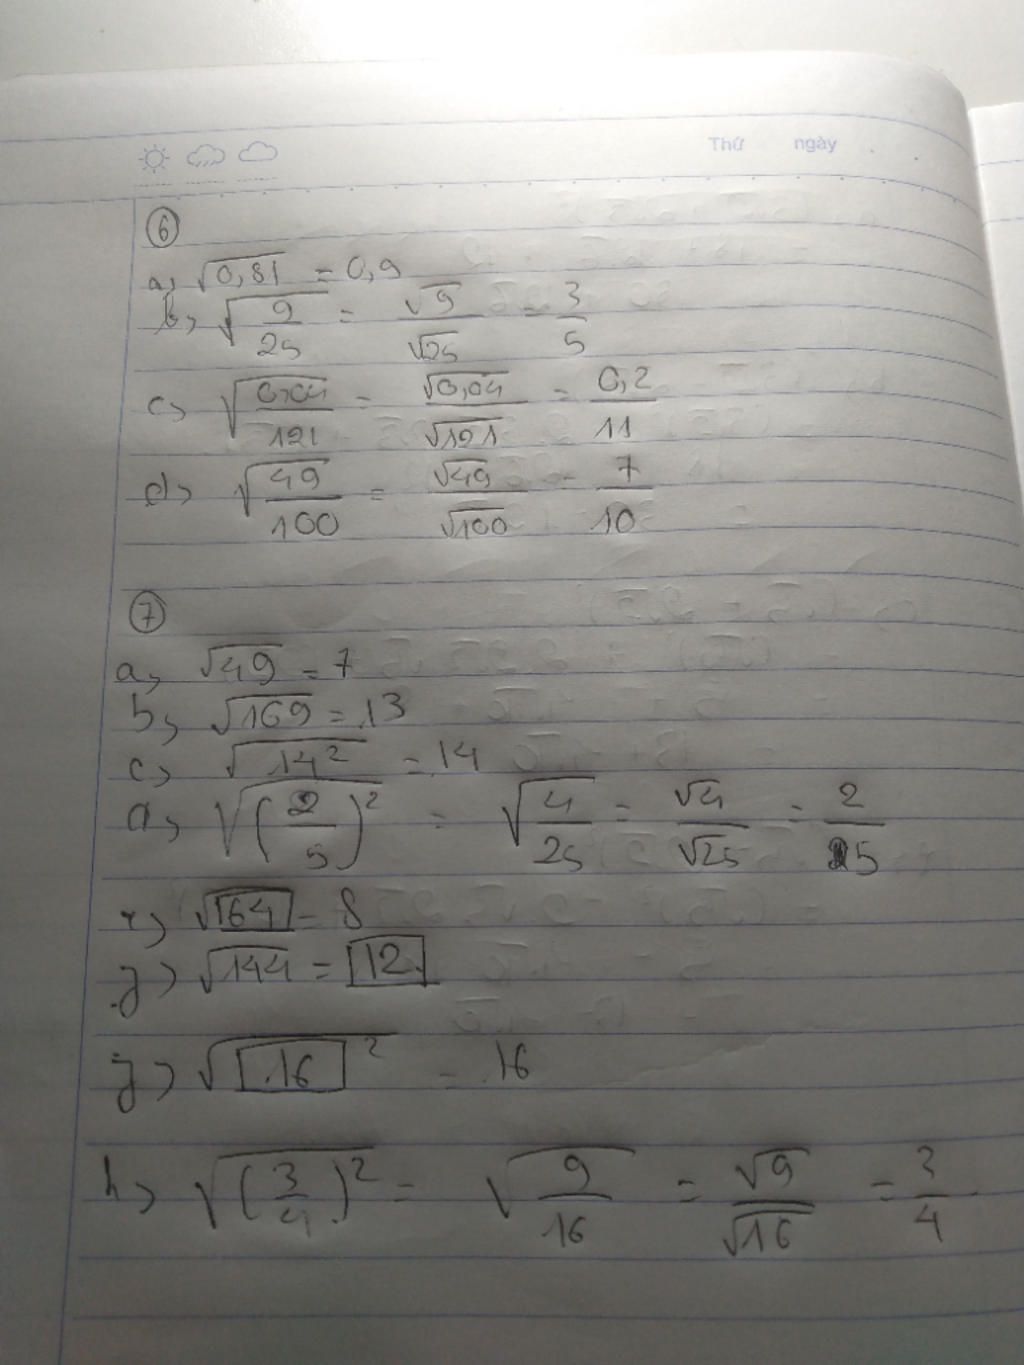 Thứ ngày
⑥
a, √0,81 = 0,9
b, √(9/25) = √9/√25 = 3/5
c, √(0,04/121) = √0,04/√121 = 0,2/11
d, √(49/100) = √49/√100 = 7/10
⑦
a, √49 = 7
b, √169 = 13
c, √14² = 14
d, √(2/5)² = √(4/25) = √4/√25 = 2/5
√64 = 8
√144 = 12
√16² = 16
h, √(3/4)² = √(9/16) = √9/√16 = 3/4